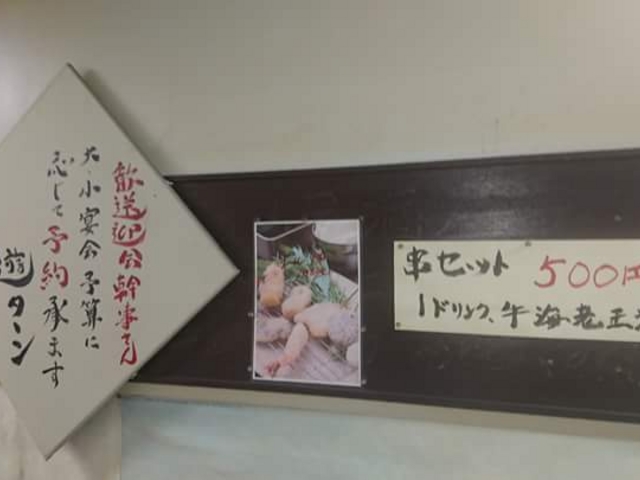 歓送迎会幹事さん
大・小宴会予算に
応じて予約承ます
遊ターン
串セット 500円
1ドリンク、牛海老